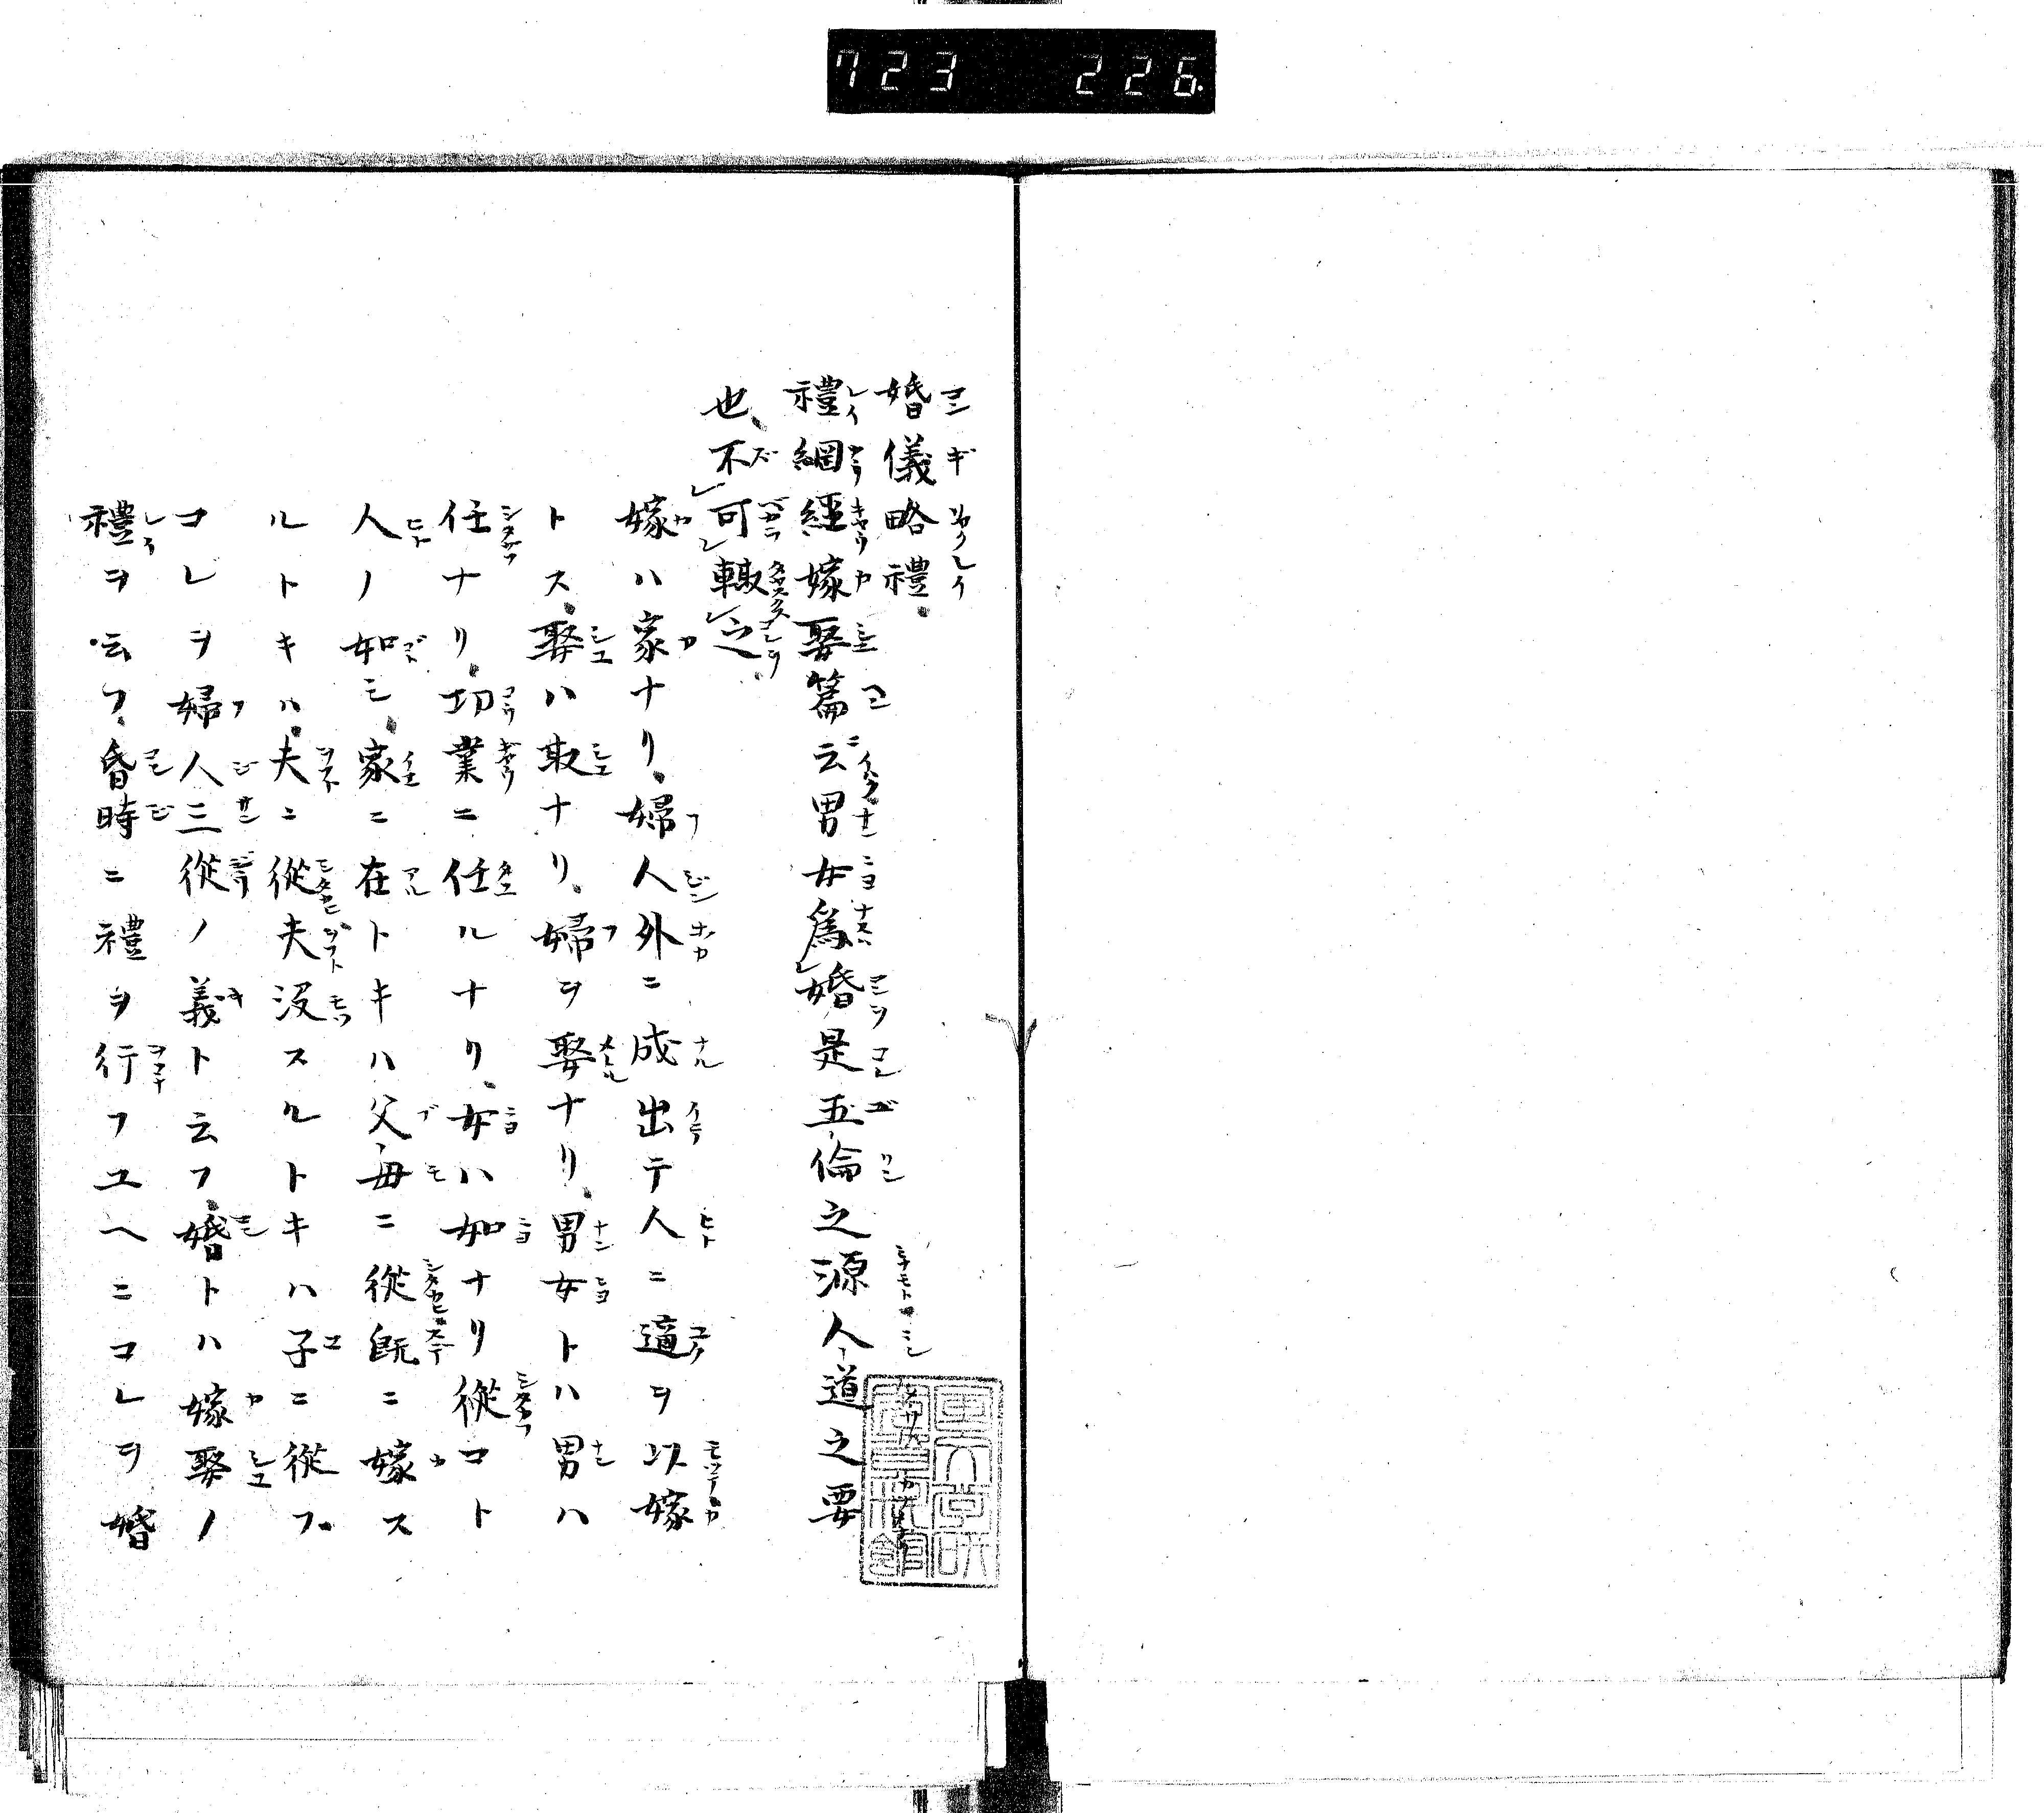 723 226
婚儀略禮
禮綱經嫁娶篇云男女爲婚是五倫之源人道之要
也、不可輙之
嫁ハ家ナリ、婦人外ニ成出テ人ニ適ヲ以嫁
トス、娶ハ取ナリ、婦ヲ娶ナリ、男女トハ男ハ
任ナリ、功業ニ任ルナリ、女ハ如ナリ從コト
人ノ如シ、家ニ在トキハ父母ニ從既ニ嫁ス
ルトキハ、夫ニ從夫沒スルトキハ子ニ從フ
コレヲ婦人三從ノ義ト云フ、婚トハ嫁娶ノ
禮ヲ云フ、昏時ニ禮ヲ行フユヘニコレヲ婚